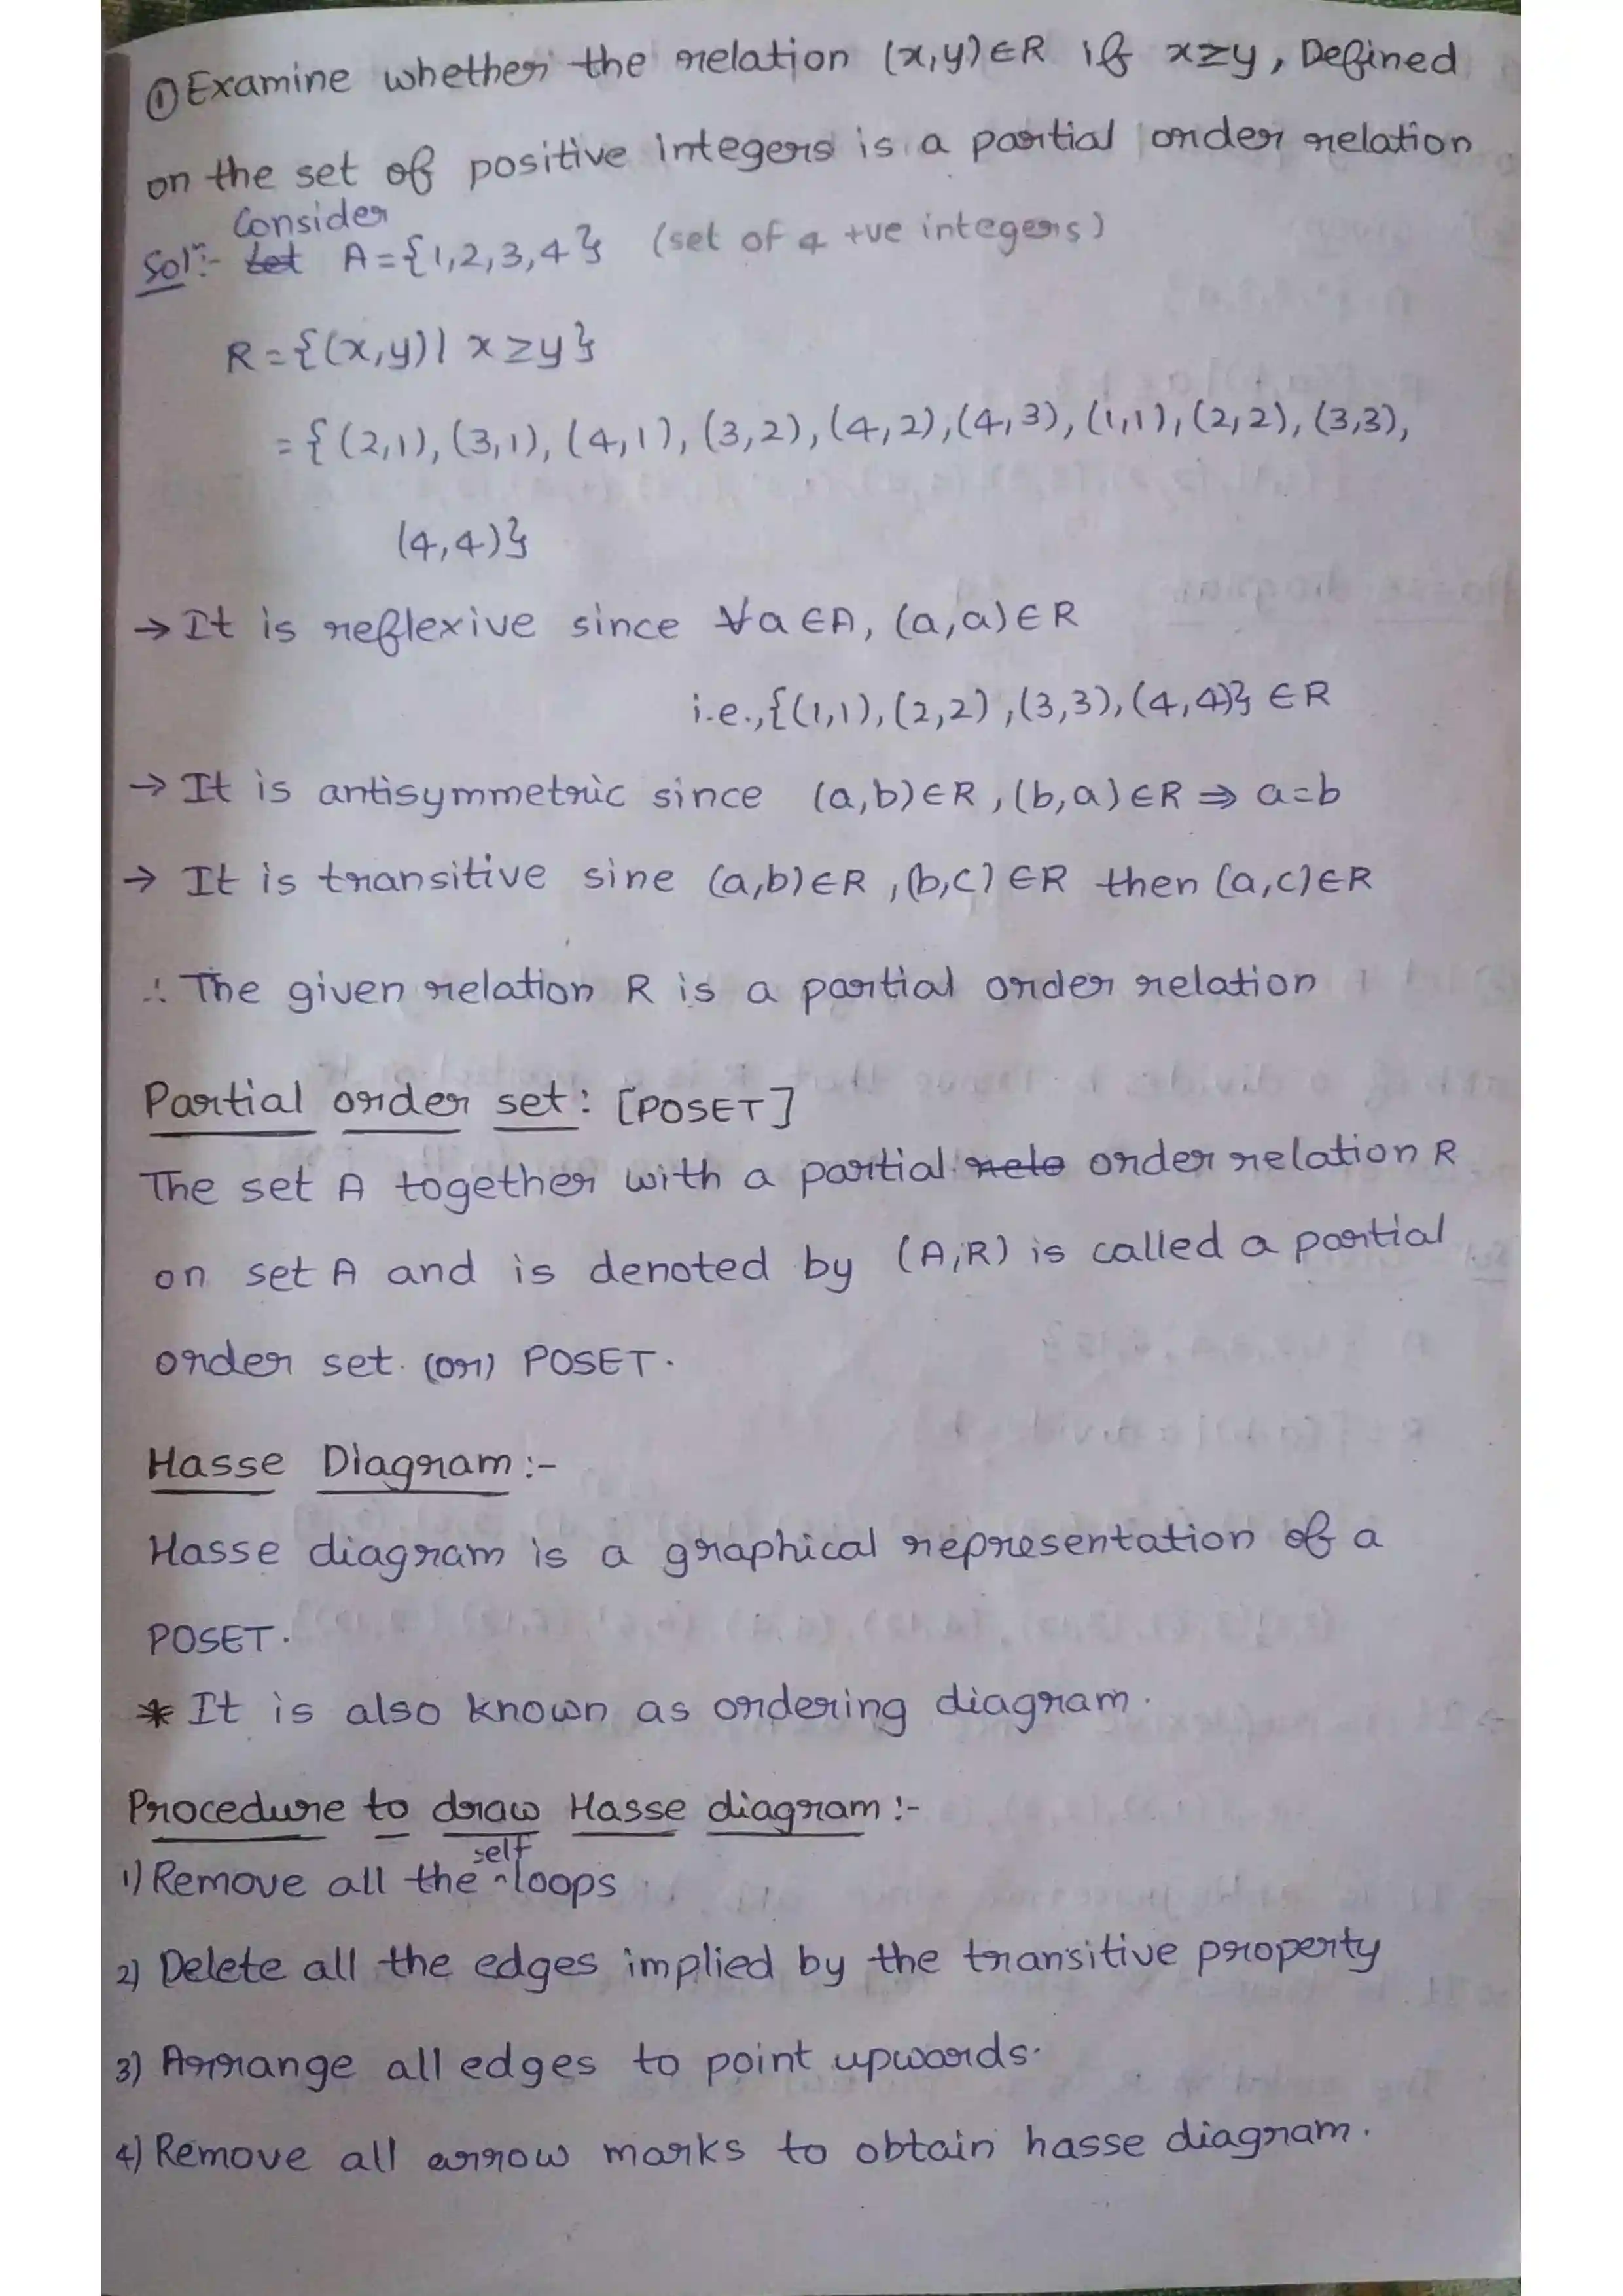 ① Examine whether the relation (x,y)∈R if x≥y, Defined
on the set of positive integers is a partial order relation
Consider
Solⁿ:- Let A={1,2,3,4} (set of 4 +ve integers)
R={(x,y)| x≥y}
={(2,1),(3,1),(4,1),(3,2),(4,2),(4,3),(1,1),(2,2),(3,3),
(4,4)}
→ It is reflexive since ∀a∈A, (a,a)∈R
i.e.,{(1,1),(2,2),(3,3),(4,4)} ∈R
→ It is antisymmetric since (a,b)∈R,(b,a)∈R ⇒ a=b
→ It is transitive sine (a,b)∈R,(b,c)∈R then (a,c)∈R
∴ The given relation R is a partial order relation
Partial order set: [POSET]
The set A together with a partial rela order relation R
on set A and is denoted by (A,R) is called a partial
order set. (or) POSET.
Hasse Diagram:-
Hasse diagram is a graphical representation of a
POSET.
* It is also known as ordering diagram.
Procedure to draw Hasse diagram:-
self
1) Remove all the ^loops
2) Delete all the edges implied by the transitive property
3) Arrange all edges to point upwards.
4) Remove all arrow marks to obtain hasse diagram.